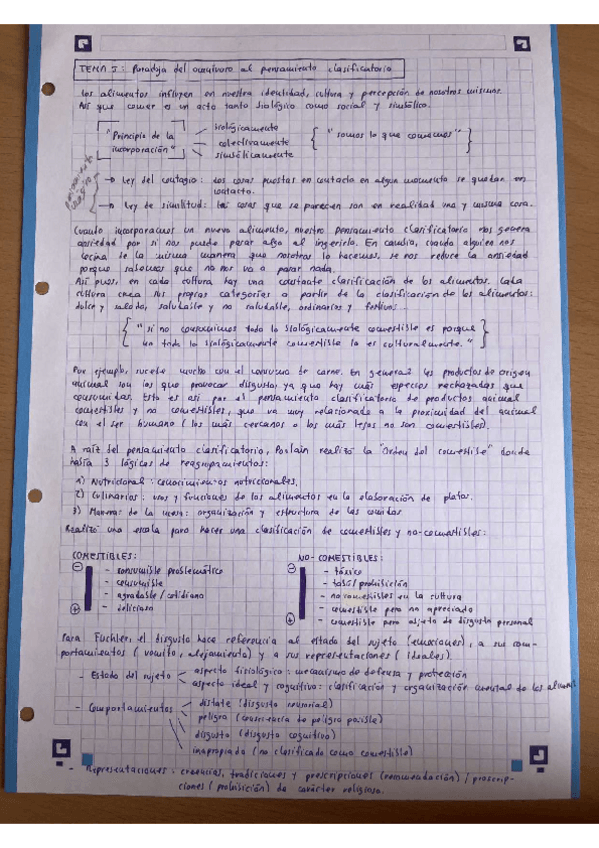 TEMA 5: Paradoja del omnívoro al pensamiento clasificatorio
Los alimentos influyen en nuestra identidad, cultura y percepción de nosotros mismos.
Así que comer es un acto tanto biológico como social y simbólico.
"Principio de la incorporación"
biológicamente
colectivamente
simbólicamente
{ "somos lo que comemos" }
pensamiento mágico
→ Ley del contagio: las cosas puestas en contacto en algún momento se quedan en
contacto.
→ Ley de similitud: las cosas que se parecen son en realidad una y misma cosa.
Cuando incorporamos un nuevo alimento, nuestro pensamiento clasificatorio nos genera
ansiedad por si nos puede pasar algo al ingerirlo. En cambio, cuando alguien nos
cocina de la misma manera que nosotros lo hacemos, se nos reduce la ansiedad
porque sabemos que no nos va a pasar nada.
Así pues, en cada cultura hay una constante clasificación de los alimentos. Cada
cultura crea sus propias categorías a partir de la clasificación de los alimentos:
dulce y salado, saludable y no saludable, ordinarios y festivos...
{ "si no consumimos todo lo biológicamente comestible es porque
no todo lo biológicamente comestible lo es culturalmente." }
Por ejemplo, sucede mucho con el consumo de carne. En general los productos de origen
animal son los que provocan disgusto, ya que hay más especies rechazadas que
consumidas. Esto es así por el pensamiento clasificatorio de productos animal
comestibles y no comestibles, que va muy relacionado a la proximidad del animal
con el ser humano (los más cercanos o los más lejos no son comestibles).
A raíz del pensamiento clasificatorio, Poulain realizó la "Orden del comestible" donde
había 3 lógicas de reagrupamientos:
1) Nutricional: conocimientos nutricionales.
2) Culinarios: usos y funciones de los alimentos en la elaboración de platos.
3) Maneras de la mesa: organización y estructura de las comidas
Realizó una escala para hacer una clasificación de comestibles y no-comestibles:
COMESTIBLES:
⊖ - consumible problemático
- consumible
- agradable / cotidiano
⊕ - delicioso
NO-COMESTIBLES:
⊖ - tóxico
- tabú/prohibición
- no comestibles en la cultura
- comestible pero no apreciado
⊕ - comestible pero objeto de disgusto personal
Para Fischler, el disgusto hace referencia al estado del sujeto (emociones), a sus com-
portamientos (vomito, alejamiento) y a sus representaciones (ideales).
- Estado del sujeto
aspecto fisiológico: mecanismo de defensa y protección
aspecto ideal y cognitivo: clasificación y organización mental de los alimentos
- Comportamientos
distate (disgusto sensorial)
peligro (consciencia de peligro posible)
disgusto (disgusto cognitivo)
inapropiada (no clasificado como comestible)
- Representaciones: creencias, tradiciones y prescripciones (recomendación) / proscrip-
ciones (prohibición) de carácter religioso.